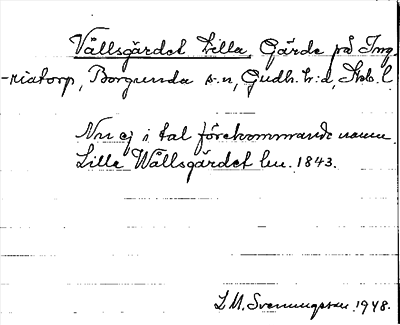 Vållsgärdet Lilla, Gärde på Ing-
-riatorp, Borgunda s:n, Gudh. h:d, Skb. l.
Nu ej i tal förekommande namn.
Lilla Wållsgärdet lm. 1843.
L. M. Svenungsson. 1948.